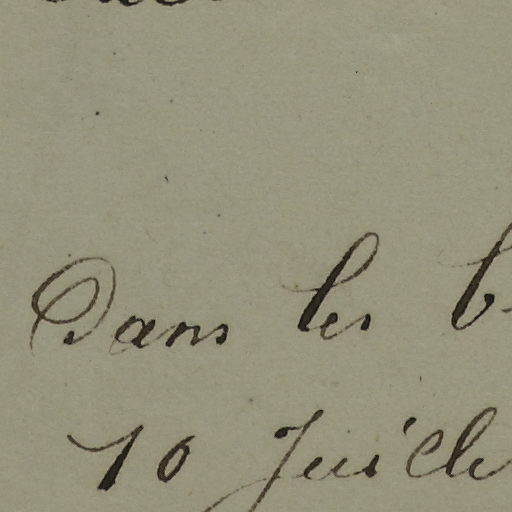 Dans les b
10 Juille